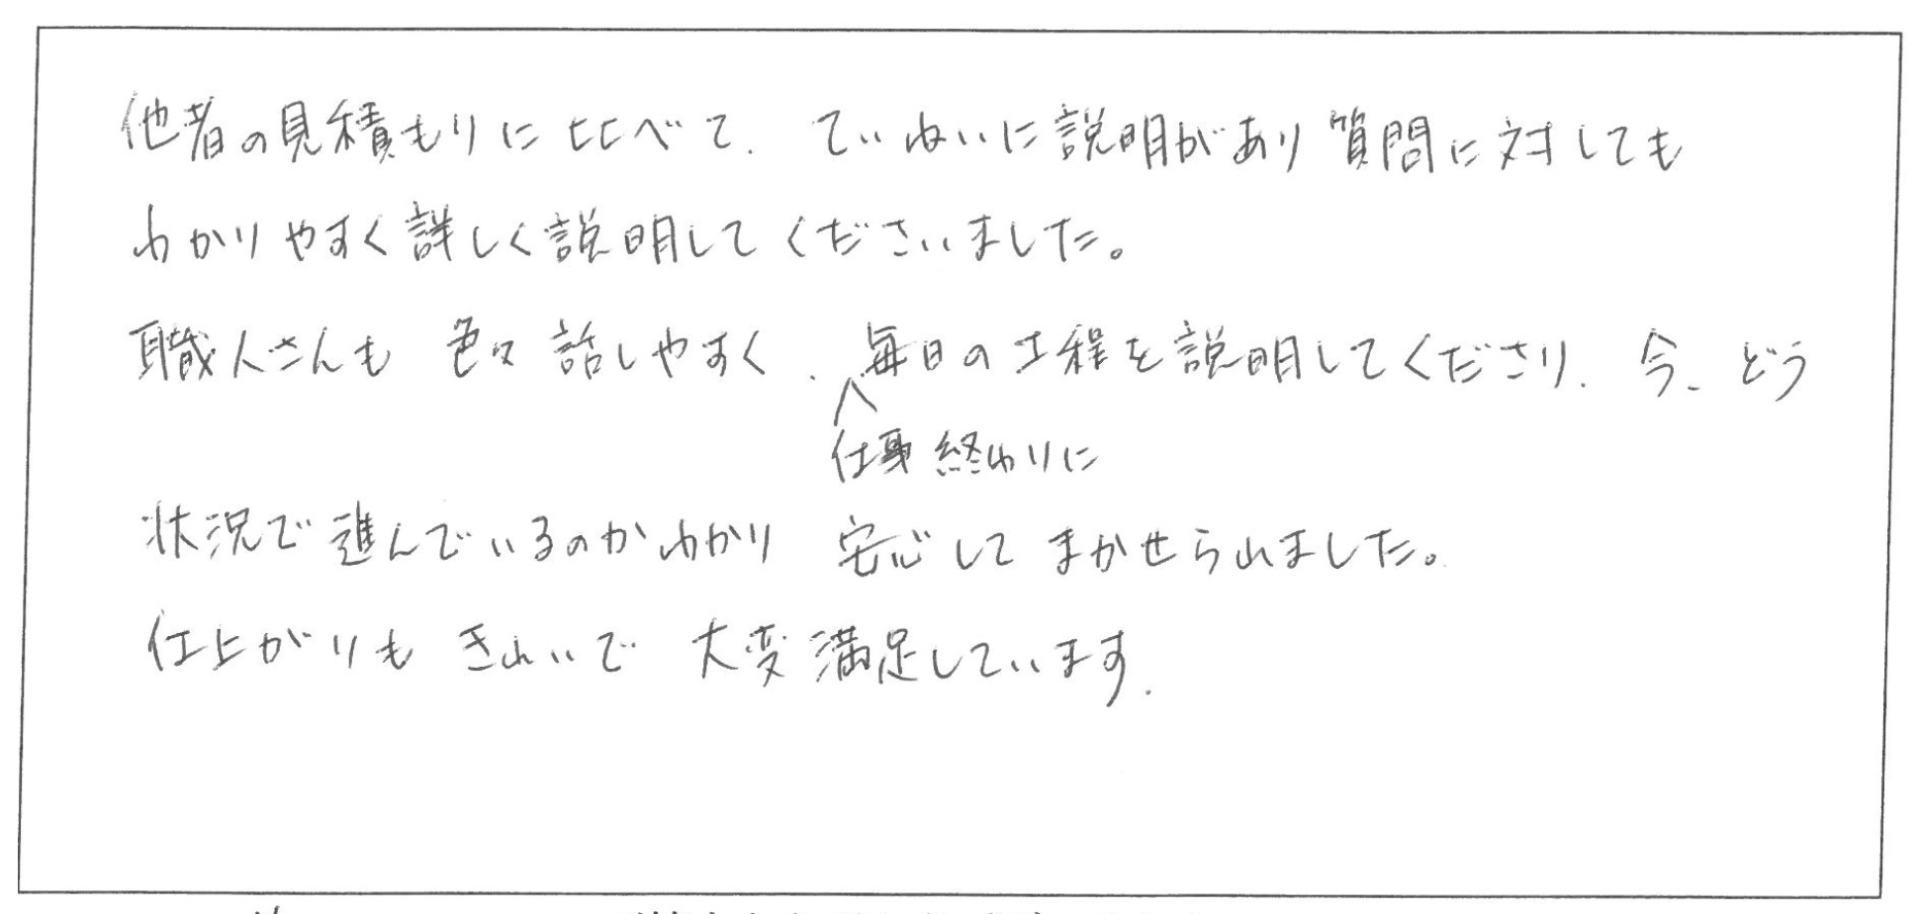 他者の見積もりに比べて、ていねいに説明があり質問に対しても
わかりやすく詳しく説明してくださいました。
職人さんも 色々 話しやすく、毎日の工程を説明してくださり、今、どう
仕事終わりに
状況で進んでいるのかわかり 安心して まかせられました。
仕上がりも きれいで 大変満足しています。